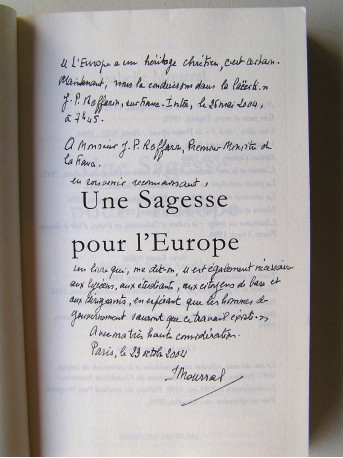 « L'Europe a un héritage chrétien, c'est certain.
Maintenant, nous la conduisons dans la laïcité. »
J. P. Raffarin, sur France. Inter, le 26 mai 2004,
à 7h45.
A Monsieur J. P. Raffarin, Premier Ministre de
la France.
en souvenir reconnaissant,
Une Sagesse
pour l'Europe
un livre qui, me dit-on, « est également nécessaire
aux lycéens, aux étudiants, aux citoyens de base et
aux dirigeants, en espérant que les hommes de
gouvernement sauront que ce travail existe. »
Avec ma très haute considération.
Paris, le 23 octobre 2004
J Mourral